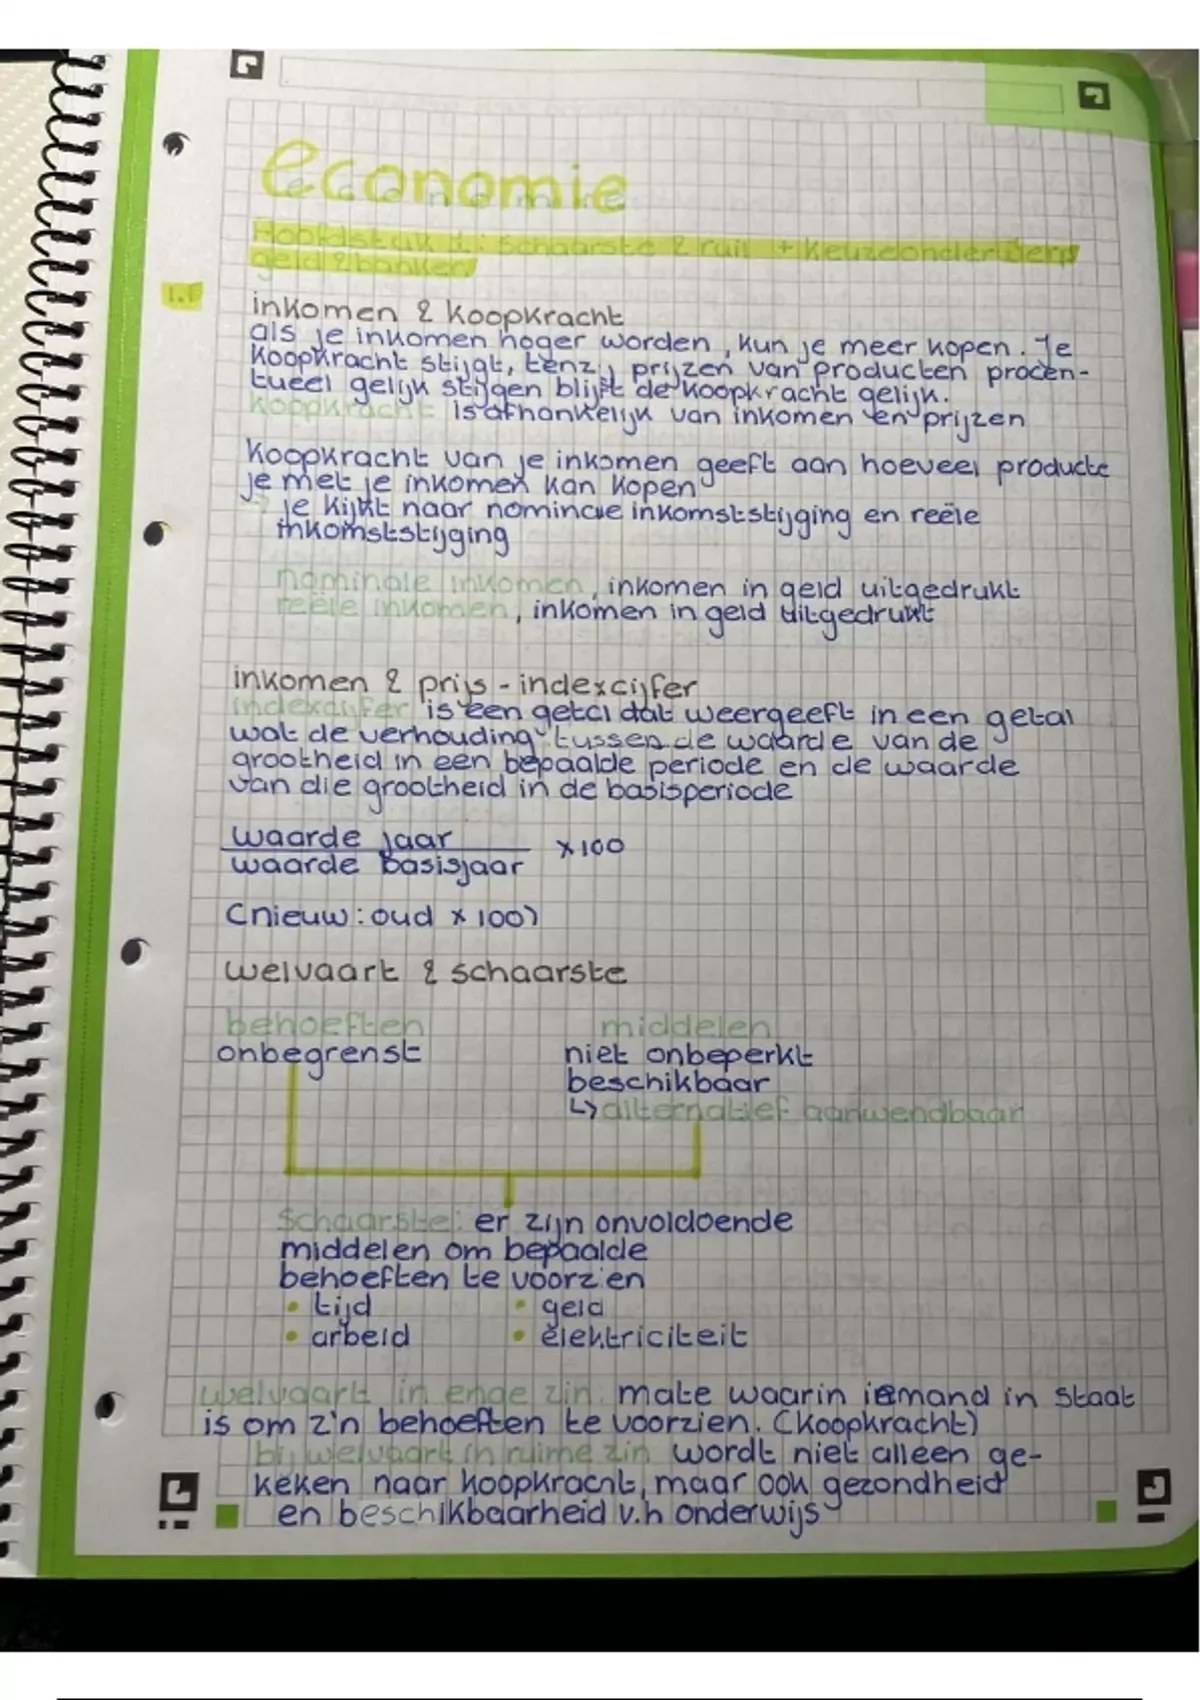 economie
Hoofdstuk 1: schaarste & ruil + keuzeonderdeel
geld & banken
1.1
inkomen & koopkracht
als je inkomen hoger worden, kun je meer kopen. Je
koopkracht stijgt, tenzij prijzen van producten procen-
tueel gelijk stijgen blijft de koopkracht gelijk.
koopkracht is afhankelijk van inkomen en prijzen
Koopkracht van je inkomen geeft aan hoeveel producte
je met je inkomen kan kopen
→ je kijkt naar nominale inkomststijging en reële
inkomststijging
nominale inkomen, inkomen in geld uitgedrukt
reële inkomen, inkomen in geld uitgedrukt
inkomen & prijs - indexcijfer
indexcijfer is een getal dat weergeeft in een getal
wat de verhouding tussen de waarde van de
grootheid in een bepaalde periode en de waarde
van die grootheid in de basisperiode
waarde jaar
waarde basisjaar
x100
(nieuw : oud x 100)
welvaart & schaarste
behoeften middelen
onbegrenst niet onbeperkt
beschikbaar
↳ alternatief aanwendbaar
Schaarste: er zijn onvoldoende
middelen om bepaalde
behoeften te voorzien
• tijd • geld
• arbeid • elektriciteit
welvaart in enge zin: mate waarin iemand in staat
is om z'n behoeften te voorzien. (koopkracht)
bij welvaart in ruime zin wordt niet alleen ge-
keken naar koopkracht, maar ook gezondheid
en beschikbaarheid v.h onderwijs